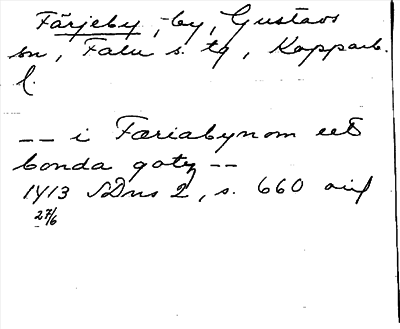 Färjeby, -by, Gustavs
sn, Falu s. tg, Kopparb.
l.
-- i Færiabynom eet
bonda gotz --
1413 SDns 2, s. 660 avs
27/6